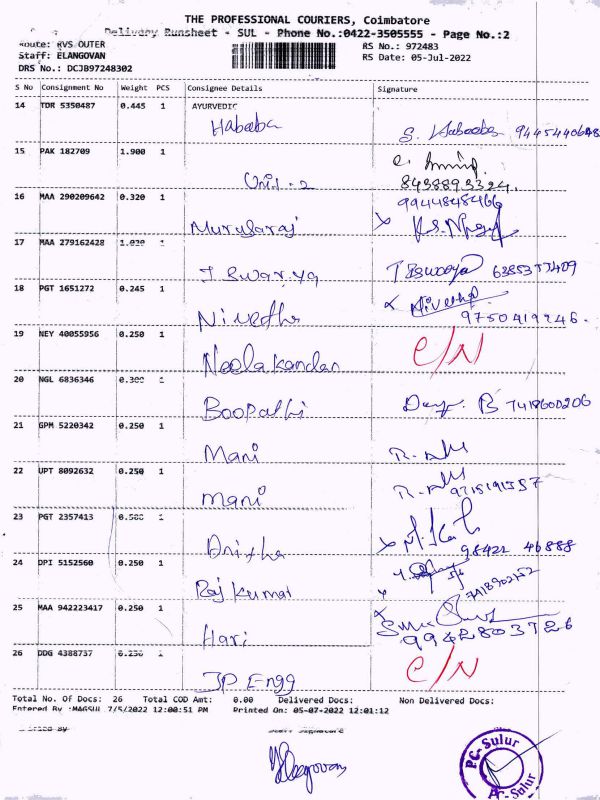 THE PROFESSIONAL COURIERS, Coimbatore
Delivery Runsheet - SUL - Phone No.:0422-3505555 - Page No.:2
Route: RVS OUTER
RS No.: 972483
Staff: ELANGOVAN
RS Date: 05-Jul-2022
DRS No.: DCJB97248302
S No Consignment No Weight PCS Consignee Details Signature
14 TDR 5350487 0.445 1 AYURVEDIC
Habeeba S. Habeeba
15 PAK 182709 1.900 1
Unit-2 8438893324
16 MAA 290209642 0.320 1 9944848466
Murugaraj
17 MAA 279162428 1.020 1
Iswarya
18 PGT 1651272 0.245 1
Nivedha Nivedha
9750419246.
19 NEY 40055956 0.250 1 C/N
Neelakandan
20 NGL 6836346 0.300 1
Boopathi B 7418600206
21 GPM 5220342 0.250 1
Mani
22 UPT 8092632 0.250 1
Mani
23 PGT 2357413 0.500 1
Anitha 98421 46888
24 DPI 5152560 0.250 1
Raj Kumar
25 MAA 942223417 0.250 1
Hari 9942803726
26 DDG 4388737 0.250 1 C/N
JP Engg
Total No. Of Docs: 26 Total COD Amt: 0.00 Delivered Docs: Non Delivered Docs:
Entered By :MAGSUL 7/5/2022 12:00:51 PM Printed On: 05-07-2022 12:01:12
Elangovan
PC-Sulur
PC-Sulur